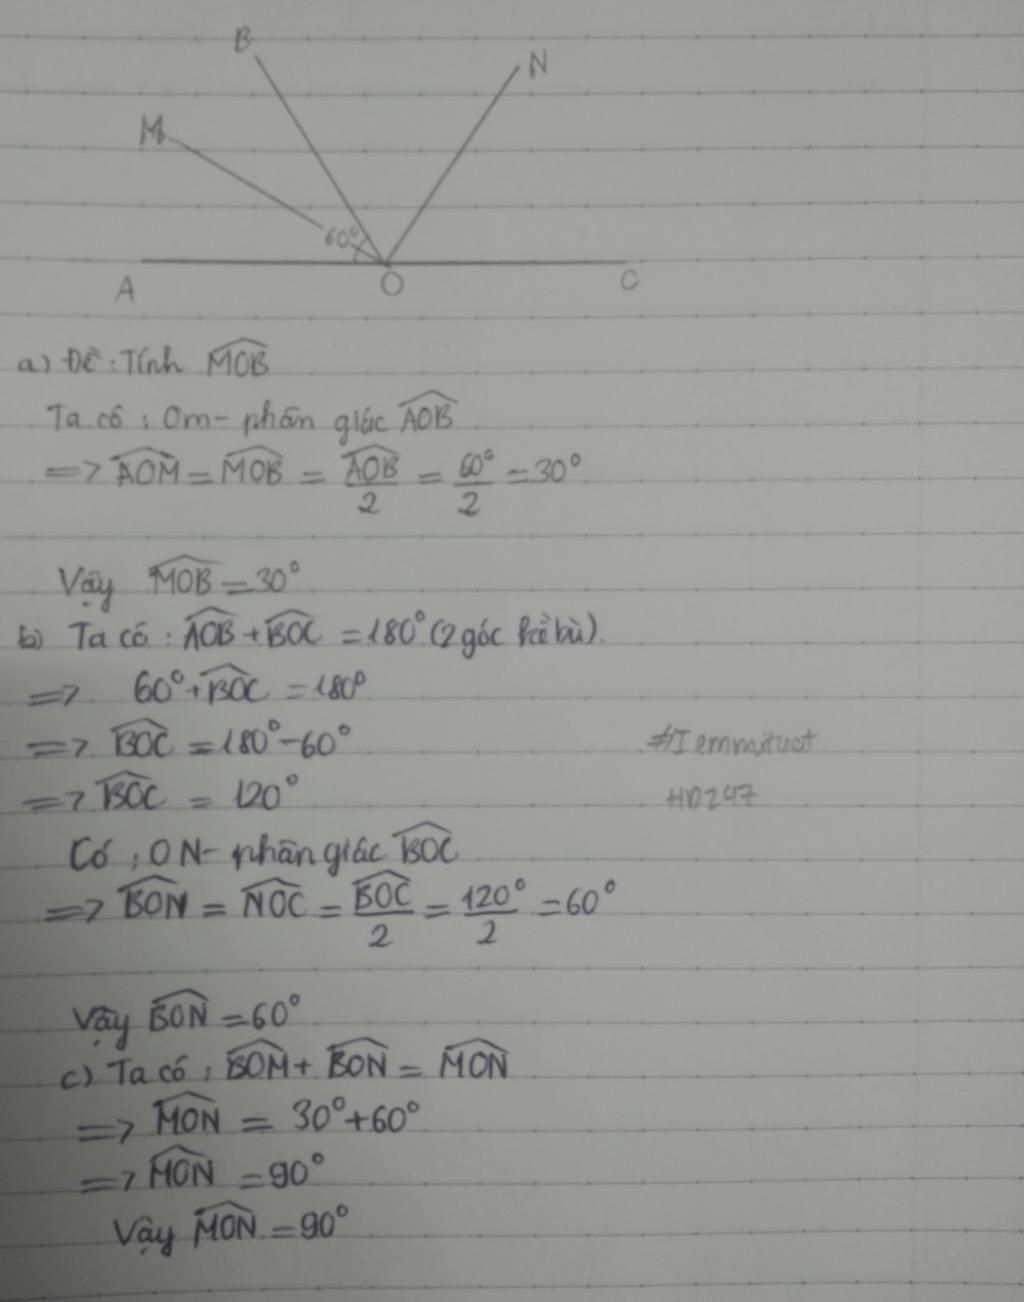 B
N
M
60°
A
O
C
a) Đề: Tính MOB
Ta có: Om- phân giác AOB
=> AOM = MOB = AOB/2 = 60°/2 = 30°
Vậy MOB = 30°
b) Ta có: AOB + BOC = 180° (2 góc kề bù).
=> 60° + BOC = 180°
=> BOC = 180° - 60°
=> BOC = 120°
#Iemmituot
HD247
Có: ON- phân giác BOC
=> BON = NOC = BOC/2 = 120°/2 = 60°
Vậy BON = 60°
c) Ta có: BOM + BON = MON
=> MON = 30° + 60°
=> MON = 90°
Vậy MON = 90°